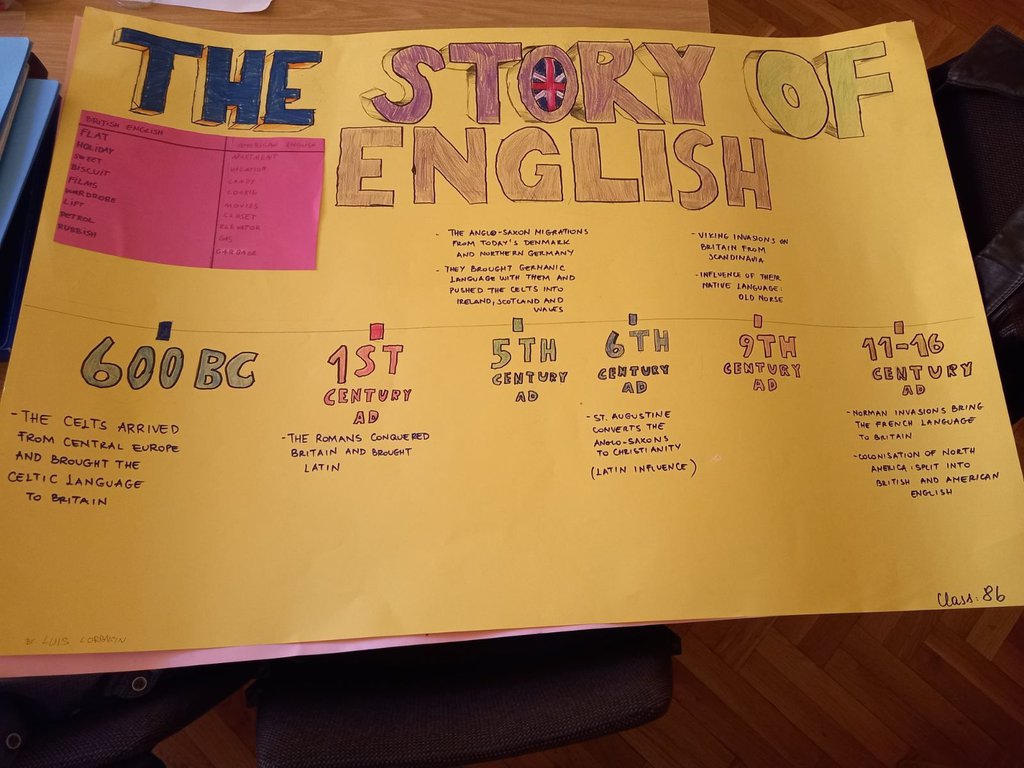 THE STORY OF
ENGLISH
BRITISH ENGLISH
FLAT
HOLIDAY
SWEET
BISCUIT
FILMS
WARDROBE
LIFT
PETROL
RUBBISH
AMERICAN ENGLISH
APARTMENT
VACATION
CANDY
COOKIE
MOVIES
CLOSET
ELEVATOR
GAS
GARBAGE
- THE ANGLO-SAXON MIGRATIONS
FROM TODAY'S DENMARK
AND NORTHERN GERMANY
- THEY BROUGHT GERMANIC
LANGUAGE WITH THEM AND
PUSHED THE CELTS INTO
IRELAND, SCOTLAND AND
WALES
- VIKING INVASIONS ON
BRITAIN FROM
SCANDINAVIA
- INFLUENCE OF THEIR
NATIVE LANGUAGE:
OLD NORSE
600 BC
- THE CELTS ARRIVED
FROM CENTRAL EUROPE
AND BROUGHT THE
CELTIC LANGUAGE
TO BRITAIN
1ST
CENTURY
AD
- THE ROMANS CONQUERED
BRITAIN AND BROUGHT
LATIN
5TH
CENTURY
AD
6TH
CENTURY
AD
- ST. AUGUSTINE
CONVERTS THE
ANGLO-SAXONS
TO CHRISTIANITY
(LATIN INFLUENCE)
9TH
CENTURY
AD
11-16
CENTURY
AD
- NORMAN INVASIONS BRING
THE FRENCH LANGUAGE
TO BRITAIN
- COLONISATION OF NORTH
AMERICA: SPLIT INTO
BRITISH AND AMERICAN
ENGLISH
Class: 8b
LUIS